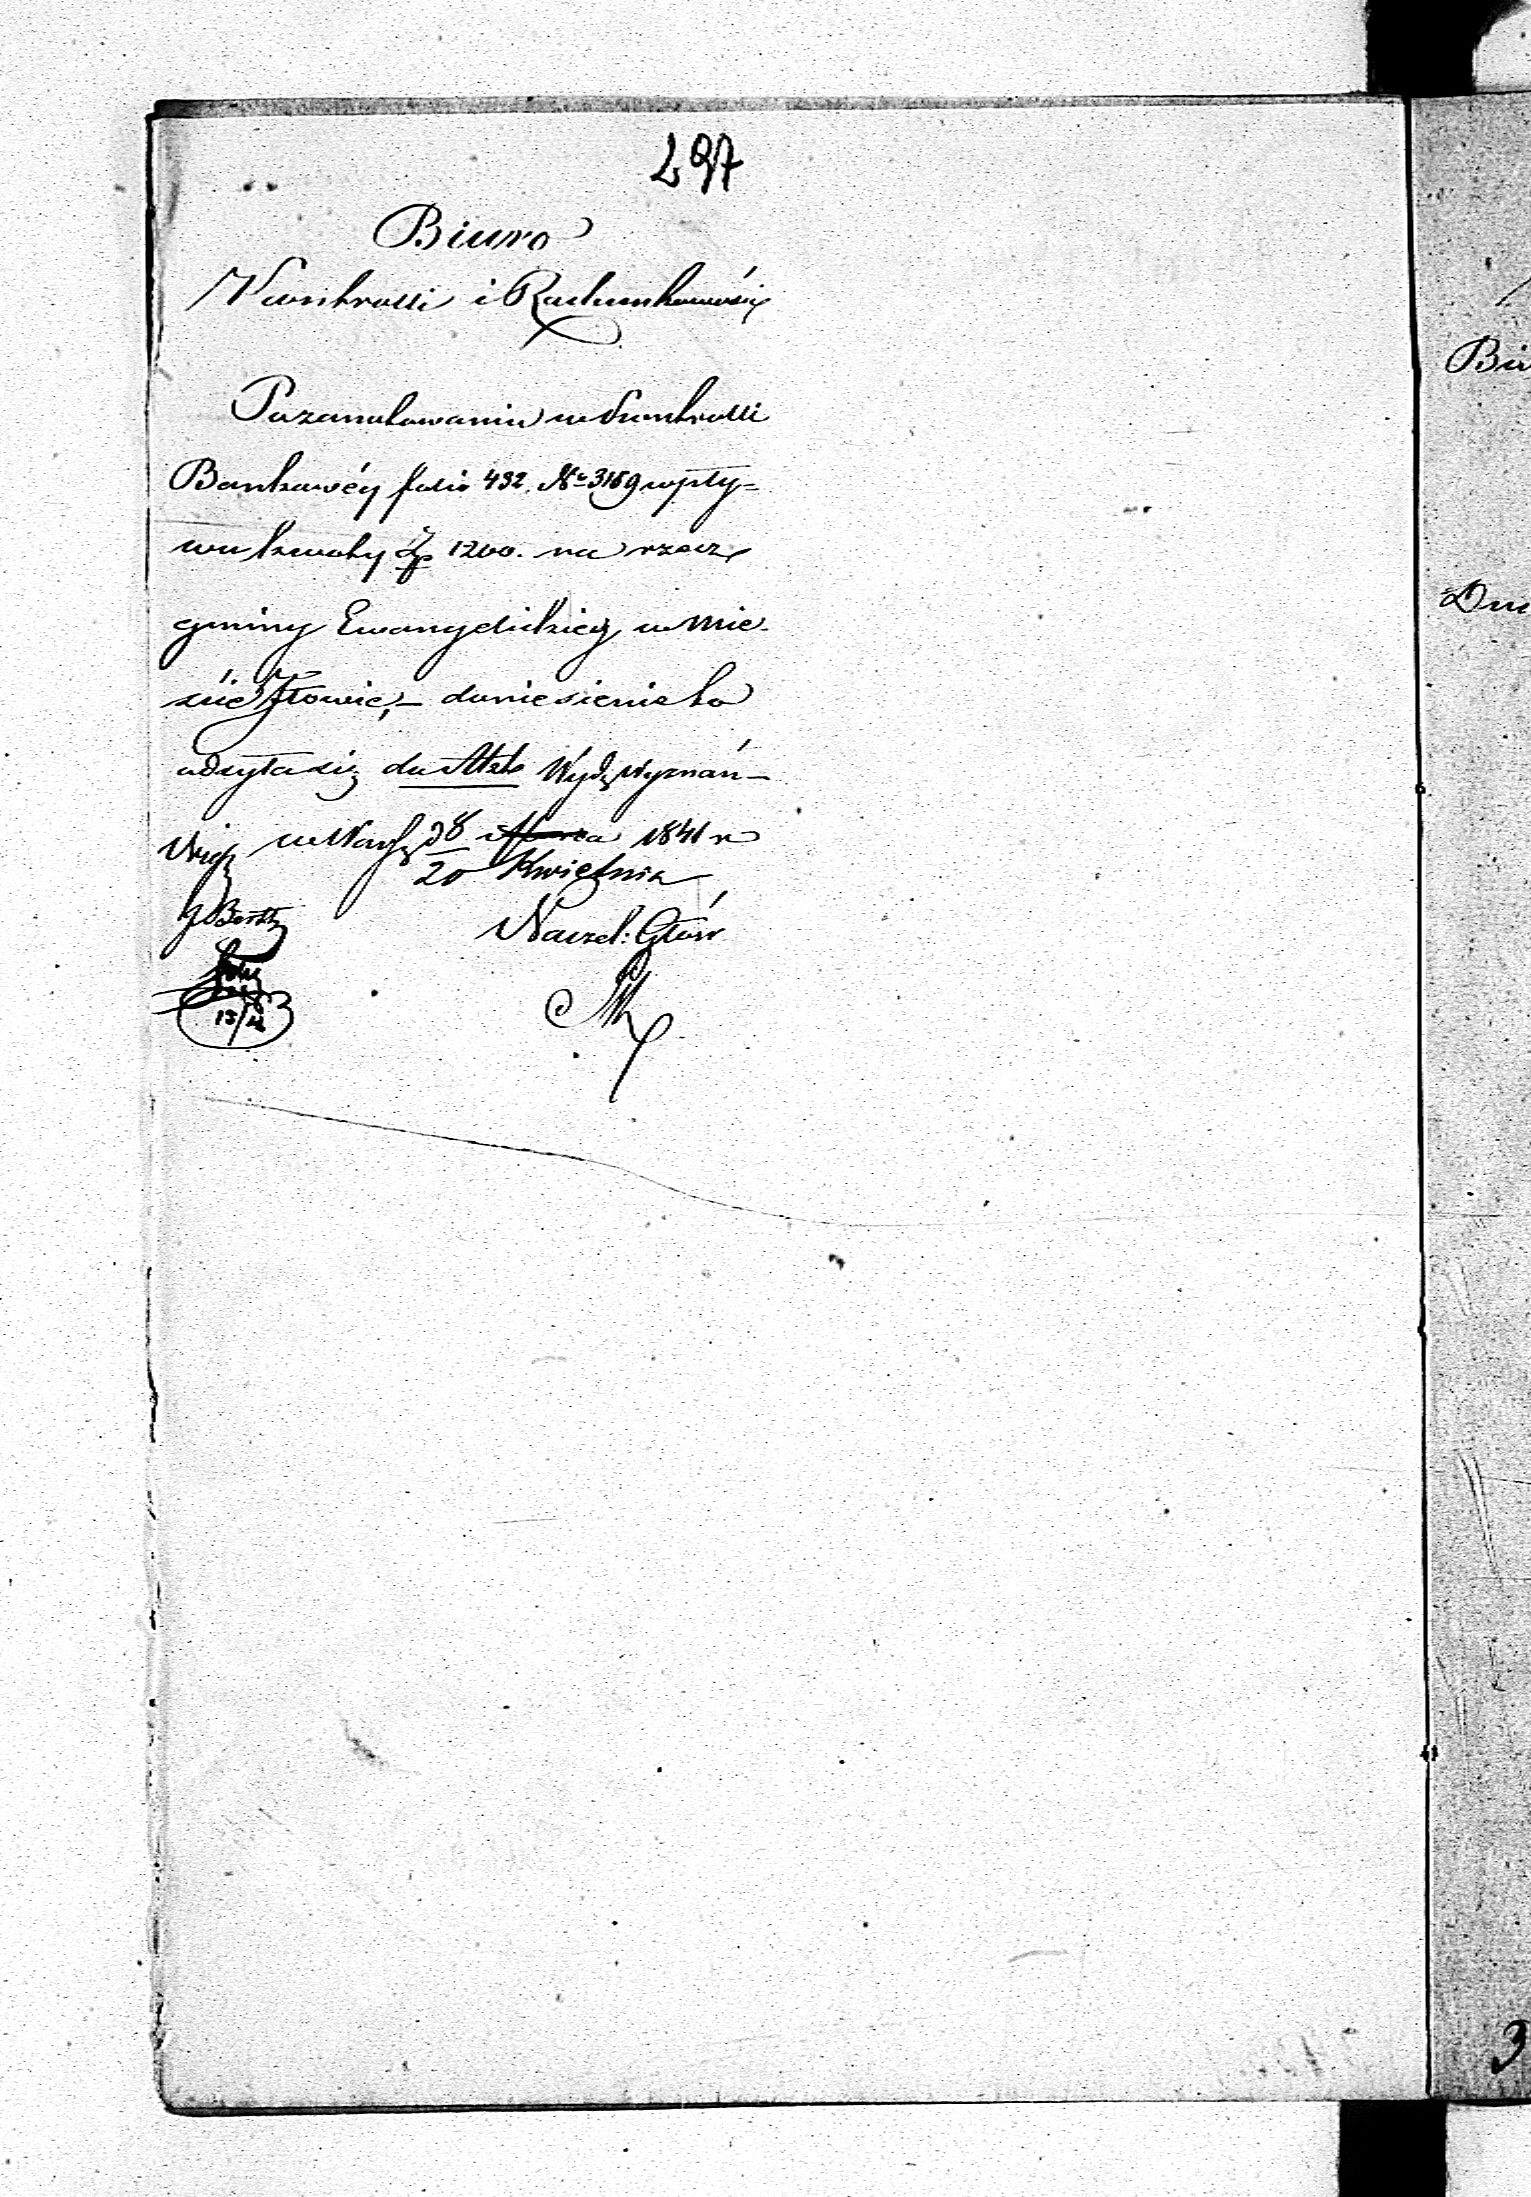 297
Biuro
Kontrolli i Rachunkowości
Po zanotowaniu w Kontrolli
Bankowéy folio 432. № 3169 wpły=
wu kwoty Zp 1200. na rzecz
gminy Ewangelickiey w mie-
ście Iłowie,– doniesienie to
odsyła się do Akt Wydz Wyznań–
w Warsz d 8 Marca 1841 r
20 Kwietnia
Naczel: Głów
13/4
Biu
3